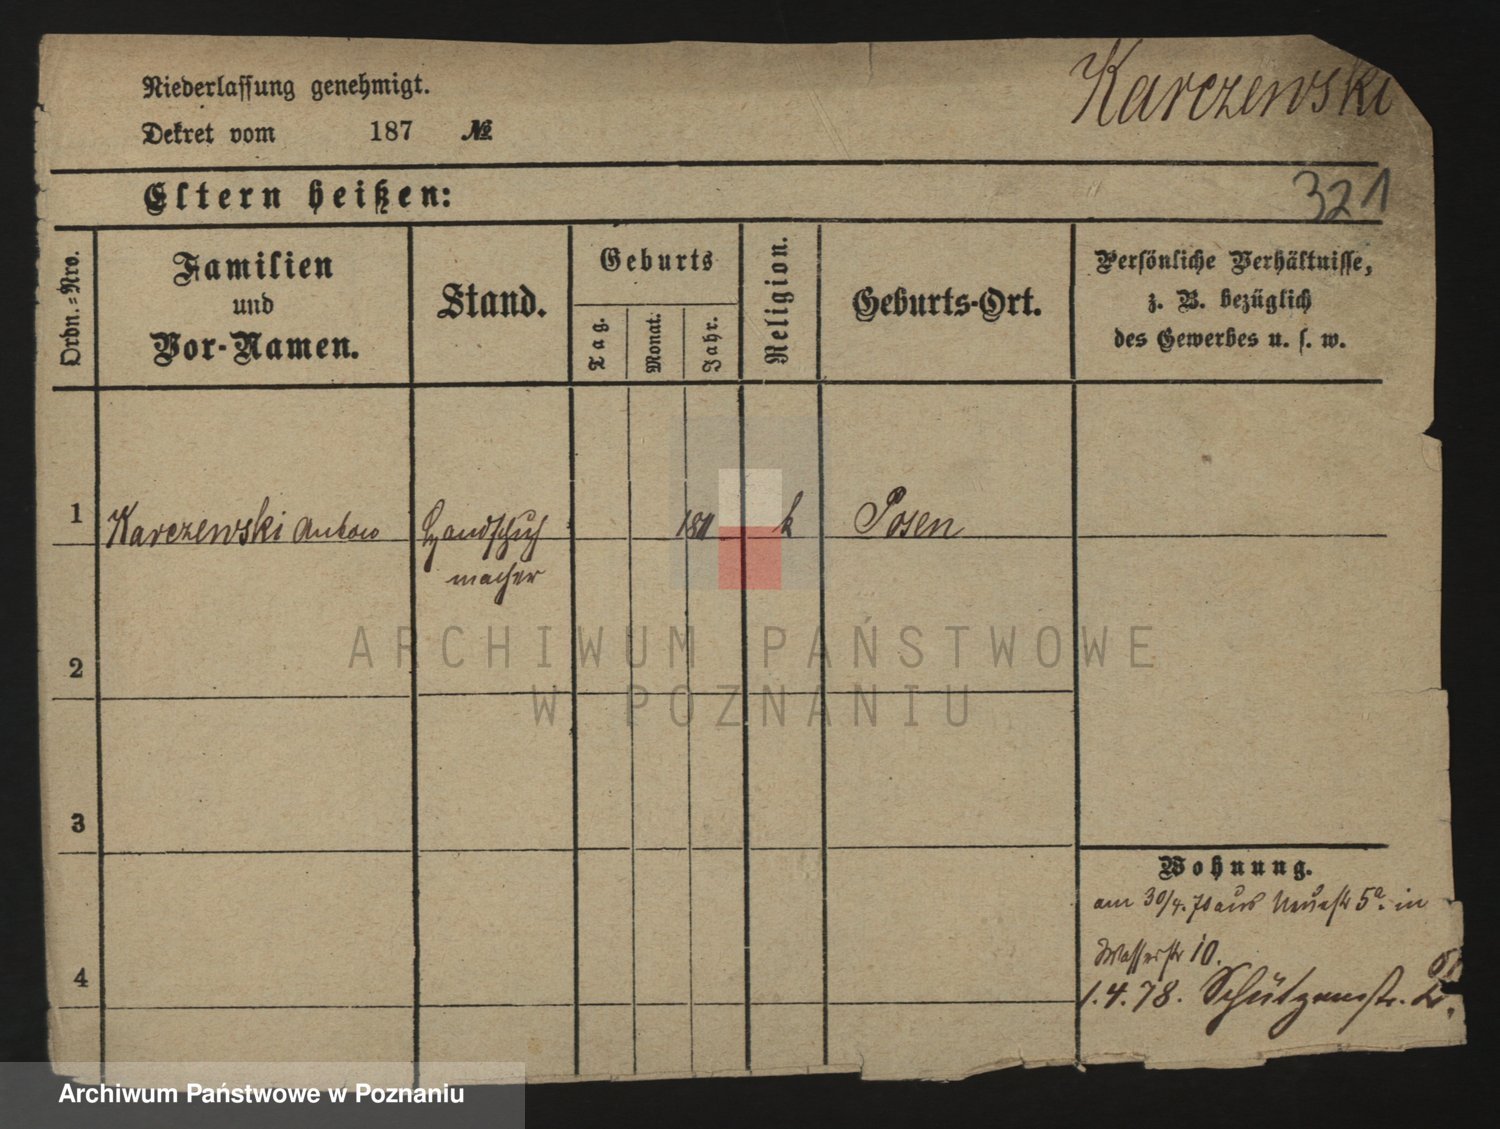 Niederlassung genehmigt.
Karczewski
Dekret vom 187 №
Eltern heißen:
321
Ordn.=Nro.
Familien
und
Vor-Namen.
Stand.
Geburts
Tag.
Monat.
Jahr.
Religion.
Geburts-Ort.
Persönliche Verhältnisse,
z. B. bezüglich
des Gewerbes u. s. w.
1 Karczewski Anton Handschuh 1811 k Posen
macher
ARCHIWUM PAŃSTWOWE
W POZNANIU
2
3
4
Wohnung.
am 30/4. 70 aus Neuestr 5a. in
Wasserstr 10.
1.4.78. Schützenstr.
Archiwum Państwowe w Poznaniu